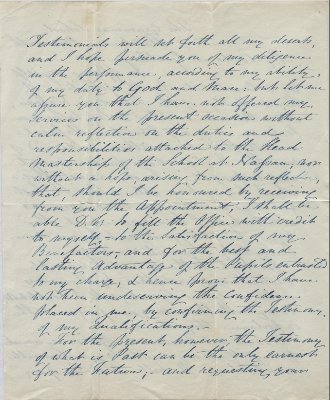 Testimonials will set forth all my deserts,
and I hope persuade you of my diligence
in the performance, according to my ability,
of my duty to God and Man: but let me
assure you that I have not offered my
Services on the present occasion without
calm reflection on the duties and
responsibilities attached to the Head
Mastership of the School at Hafnan, nor
without a hope, arising from such reflect.n
that, should I be honoured by receiving
from you the Appointment, I shall be
able D.V. to fill the Office with credit
to myself, to the Satisfaction of my
Benefactors, and for the best and
lasting Advantage of the Pupils entrusted
to my charge, & hence prove that I have
not been undeserving the Confidence
placed in me, by confirming the Testimony
of my Qualifications.
For the present, however, the Testimony
of what is Past can be the only earnest
for the Future; and requesting your